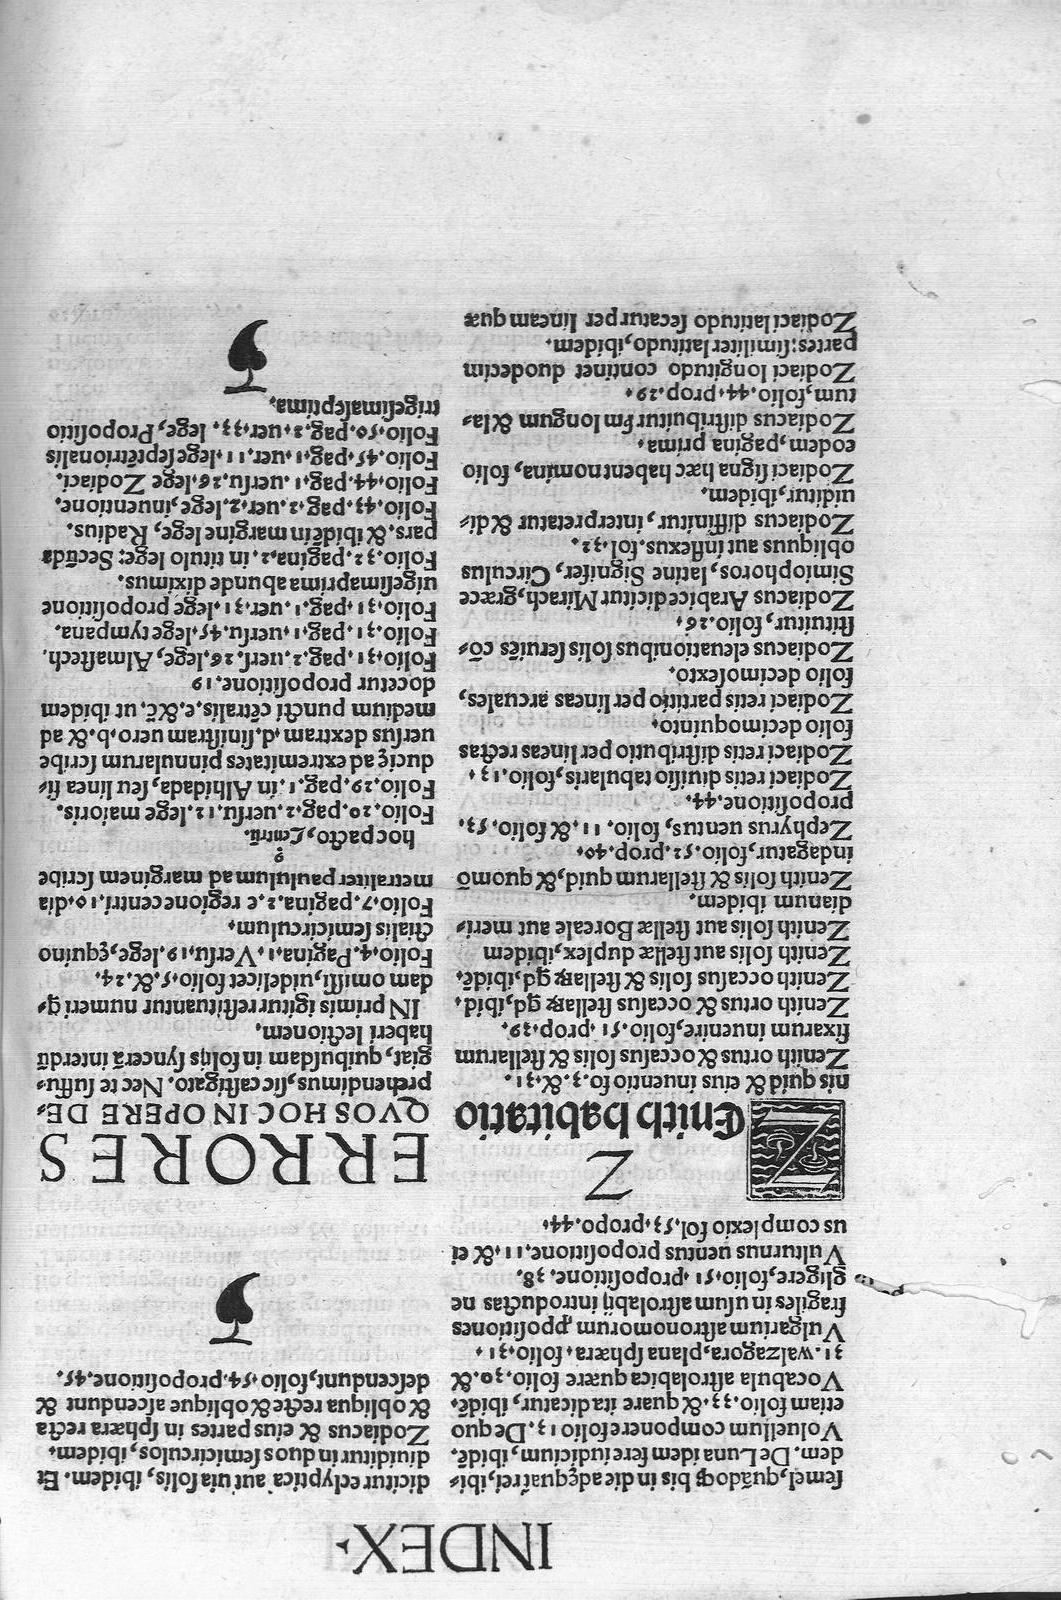 INDEX.
semel, quãdoq; bis in die adęquat rei, ibi⸗
dem. De Luna idem fere iudicium, ibidē.
Voluellum componere folio 13. De quo
etiam folio. 33. & quare ita dicatur, ibidē.
Vocabula astrolabica quære folio. 30. &
31. walzagora, plana sphæra, folio. 31.
Vulgarium astronomorum ꝓpositiones
fragiles in usum astrolabij introductas ne
gligere, folio. 51. propositione. 38.
Vulturnus uentus propositione. 11. & ei
us complexio fol. 53. propo. 44.
Z
ZEnith habitatio
nis quid & eius inuentio fo. 3. & 31.
Zenith ortus & occasus solis & stellarum
fixarum inuenire, folio. 51. prop. 39.
Zenith ortus & occasus stellaꝝ qd, ibid.
Zenith occasus solis & stellaꝝ qd, ibidē.
Zenith solis aut stellæ duplex, ibidem
Zenith solis aut stellæ Boreale aut meri⸗
dianum ibidem.
Zenith solis & stellarum quid, & quomō
indagatur, folio. 52. prop. 40.
Zephyrus uentus, folio. 11. & folio. 53.
propositione. 44.
Zodiaci retis diuisio tabularis, folio. 13.
Zodiaci retis distributio per lineas rectas
folio decimoquinto.
Zodiaci retis partitio per lineas arcuales,
folio decimosexto.
Zodiacus eleuationibus solis seruiēs cō⸗
stituitur, folio. 26.
Zodiacus Arabice dicitur Mirach, græce
Simiophoros, latine Signifer, Circulus
obliquus aut inflexus. fol. 32.
Zodiacus diffinitur, interpretatur & di⸗
uiditur, ibidem.
Zodiaci signa hæc habent nomina, folio
eodem, pagina prima.
Zodiacus distribuitur fm longum & la⸗
tum, folio. 44. prop. 29.
Zodiaci longitudo continet duodecim
partes: similiter latitudo, ibidem.
Zodiaci latitudo secatur per lineam quæ
dicitur eclyptica aut uia solis, ibidem. Et
diuiditur in duos semicirculos, ibidem.
Zodiacus & eius partes in sphæra recta
& obliqua recte & oblique ascendunt &
descendunt, folio. 54. propositione. 45.
ERRORES
QVOS HOC IN OPERE DE⸗
prehendimus, sic castigato. Nec te suffu⸗
giat, quibusdam in folijs syncerā interdū
haberi lectionem.
IN primis igitur restituantur numeri q
dam omissi, uidelicet folio. 5. & .24.
Folio. 4. Pagina. 1. Versu. 19. lege, ęquino
ctialis semicirculum.
Folio. 7. pagina. 2. e regione centri. 10. dia
metraliter paululum ad marginem scribe
hoc pacto, Centrū.
Folio. 20. pag. 2. uersu. 12. lege maioris.
Folio. 29. pag. 1. in Alhidada, seu linea fi⸗
ducię ad extremitates pinnularum scribe
uersus dextram. d. sinistram uero. b. & ad
medium puncti cētralis. e. &c̃. ut ibidem
docetur propositione. 19
Folio. 31. pag. 2. uers. 26. lege, Almastech.
Folio. 31. pag. 1. uersu. 45. lege tympana.
Folio. 31. pag. 1. uer. 31. lege propositione
uigesimaprima abunde diximus.
Folio. 32. pagina. 2. in titulo lege: Secūda
pars. & ibidē in margine lege, Radius.
Folio. 43. pag. 2. uer. 2. lege, inuentione.
Folio. 44. pag. 1. uersu. 26. lege Zodiaci.
Folio. 45. pag. 1. uer. 11. lege septētrionalis
Folio. 50. pag. 2. uer. 33. lege, Propositio
trigesimaseptima.